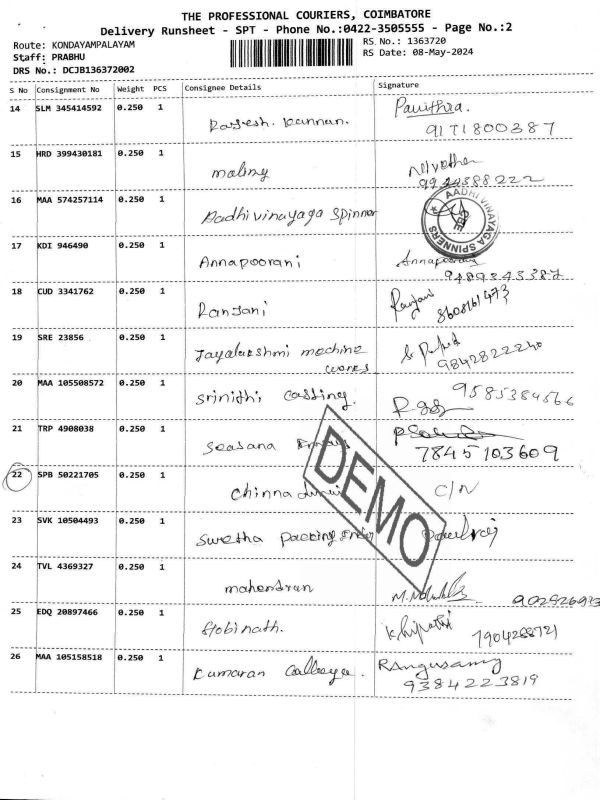 THE PROFESSIONAL COURIERS, COIMBATORE
Delivery Runsheet - SPT - Phone No.:0422-3505555 - Page No.:2
Route: KONDAYAMPALAYAM
RS. No.: 1363720
Staff: PRABHU
RS Date: 08-May-2024
DRS No.: DCJB136372002
S No Consignment No Weight PCS Consignee Details Signature
14 SLM 345414592 0.250 1 Rajesh. Kannan. Pavithra.
9171800387
15 HRD 399430181 0.250 1 maliny
16 MAA 574257114 0.250 1 Aadhivinayaga Spinner
AADHI VINAYAGA SPINNERS
CBE
17 KDI 946490 0.250 1 Annapoorani
9489843387
18 CUD 3341762 0.250 1 Ranjani Ranjani
8608161473
19 SRE 23856 0.250 1 Jayalakshmi machine works
9842822240
20 MAA 105508572 0.250 1 srinithi casting. 9585384566
21 TRP 4908038 0.250 1 Seasana
7845103609
22 SPB 50221705 0.250 1 Chinna durai C/N
23 SVK 10504493 0.250 1 Swetha packing
24 TVL 4369327 0.250 1 mahendran
25 EDQ 20897466 0.250 1 Gobinath.
26 MAA 105158518 0.250 1 Kumaran college. Rangusamy
9384223819
DEMO